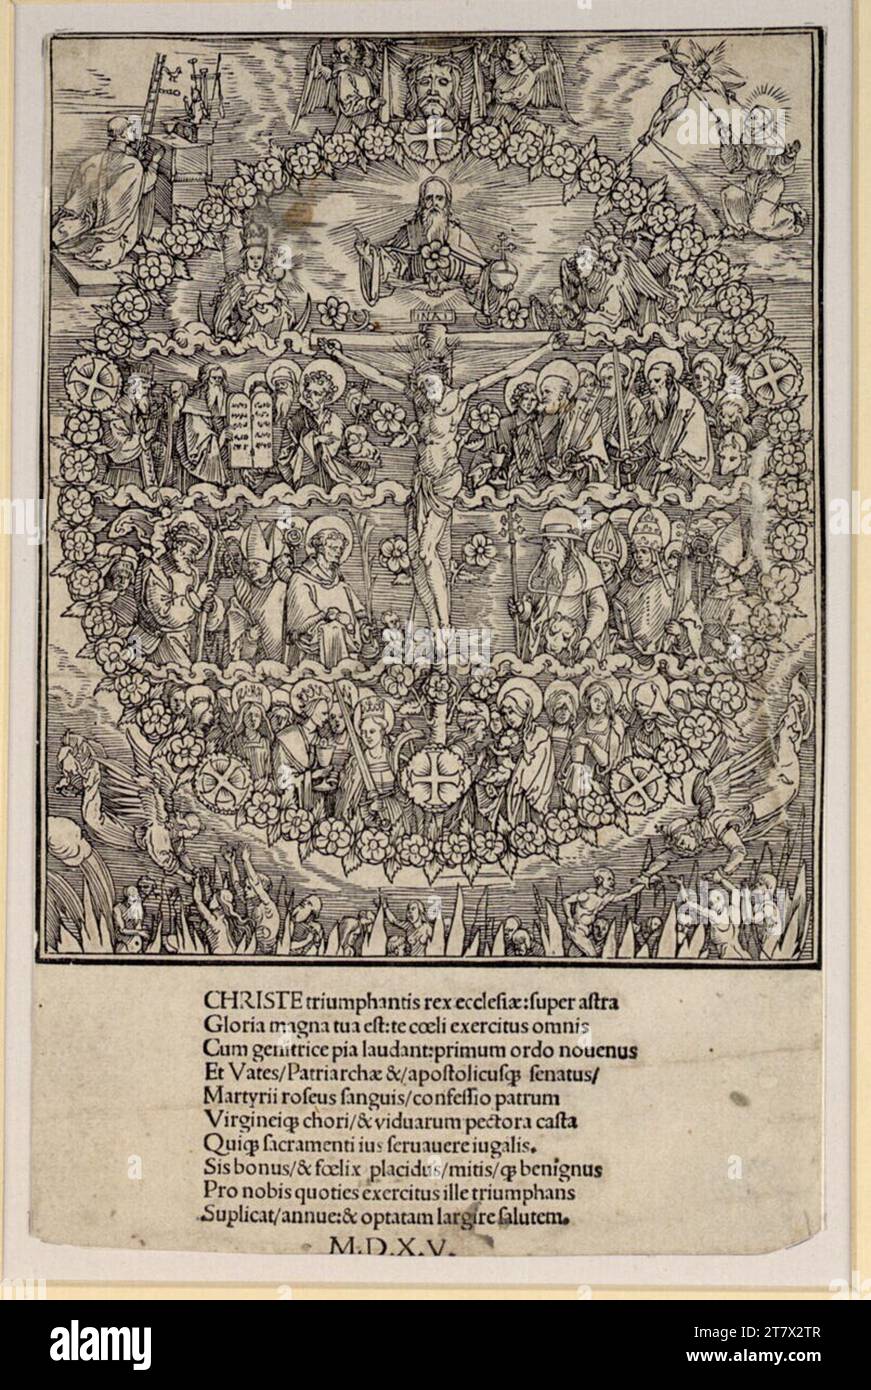 INRI
CHRISTE triumphantis rex ecclesiæ:super astra
Gloria magna tua est:te cœli exercitus omnis
Cum genitrice pia laudant:primum ordo nouenus
Et Vates/Patriarchæ &/apostolicusqꝫ senatus/
Martyrii roseus sanguis/confessio patrum
Virgineiqꝫ chori/& viduarum pectora casta
Quiqꝫ sacramenti ius seruauere iugalis.
Sis bonus/& fœlix placidus/mitis/qꝫ benignus
Pro nobis quoties exercitus ille triumphans
Suplicat/annue:& optatam largire salutem.
M.D.X.V.
alamy
Image ID: 2T7X2TR
www.alamy.com